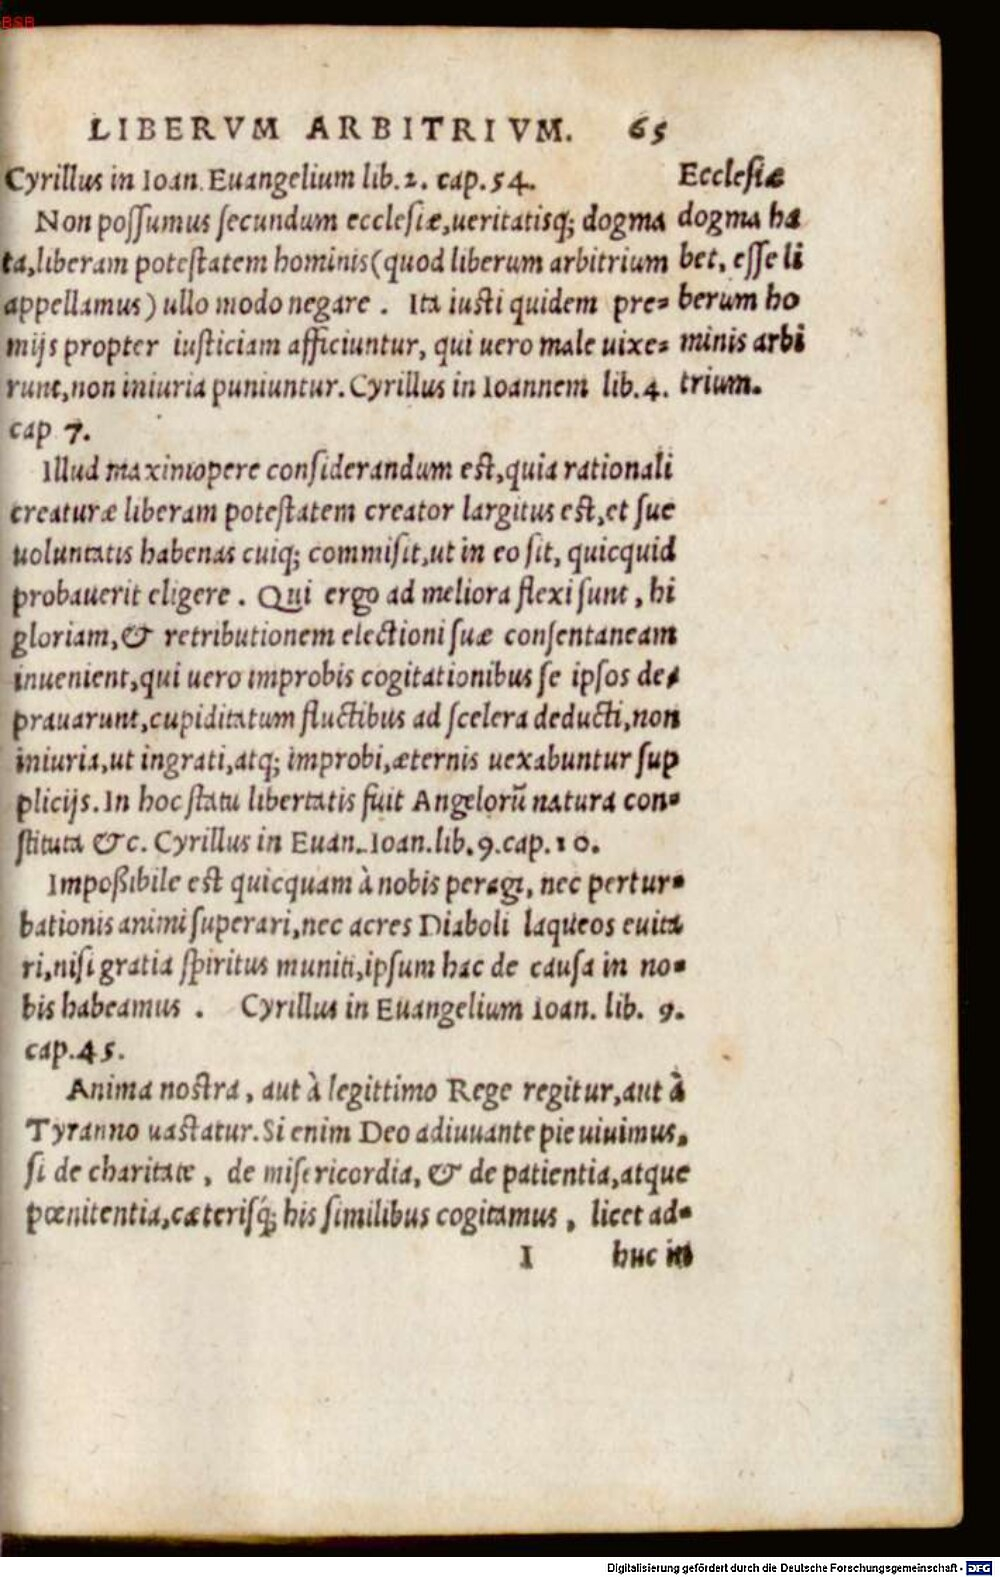 BSB
LIBERVM ARBITRIVM. 65
Cyrillus in Ioan. Euangelium lib.2. cap.54.
Non possumus secundum ecclesiæ, ueritatisq; dogma
ta, liberam potestatem hominis (quod liberum arbitrium
appellamus) ullo modo negare . Ita iusti quidem pre=
mijs propter iusticiam afficiuntur, qui uero male uixe=
runt, non iniuria puniuntur. Cyrillus in Ioannem lib.4.
cap 7.
Ecclesiæ
dogma ha
bet, esse li
berum ho
minis arbi
trium.
Illud maximopere considerandum est, quia rationali
creaturæ liberam potestatem creator largitus est, et sue
uoluntatis habenas cuiq; commisit, ut in eo sit, quicquid
probauerit eligere . Qui ergo ad meliora flexi sunt, hi
gloriam, & retributionem electioni suæ consentaneam
inuenient, qui uero improbis cogitationibus se ipsos de=
prauarunt, cupiditatum fluctibus ad scelera deducti, non
iniuria, ut ingrati, atq; improbi, æternis uexabuntur sup
plicijs. In hoc statu libertatis fuit Angelorũ natura con=
stituta &c. Cyrillus in Euan. Ioan. lib.9. cap.10.
Impoßibile est quicquam à nobis peragi, nec pertur=
bationis animi superari, nec acres Diaboli laqueos euita
ri, nisi gratia spiritus muniti, ipsum hac de causa in no=
bis habeamus . Cyrillus in Euangelium Ioan. lib. 9.
cap.45.
Anima nostra, aut à legittimo Rege regitur, aut à
Tyranno uastatur. Si enim Deo adiuuante pie uiuimus,
si de charitate, de misericordia, & de patientia, atque
pœnitentia, cæterisq́; his similibus cogitamus, licet ad=
I huc in
Digitalisierung gefördert durch die Deutsche Forschungsgemeinschaft - DFG